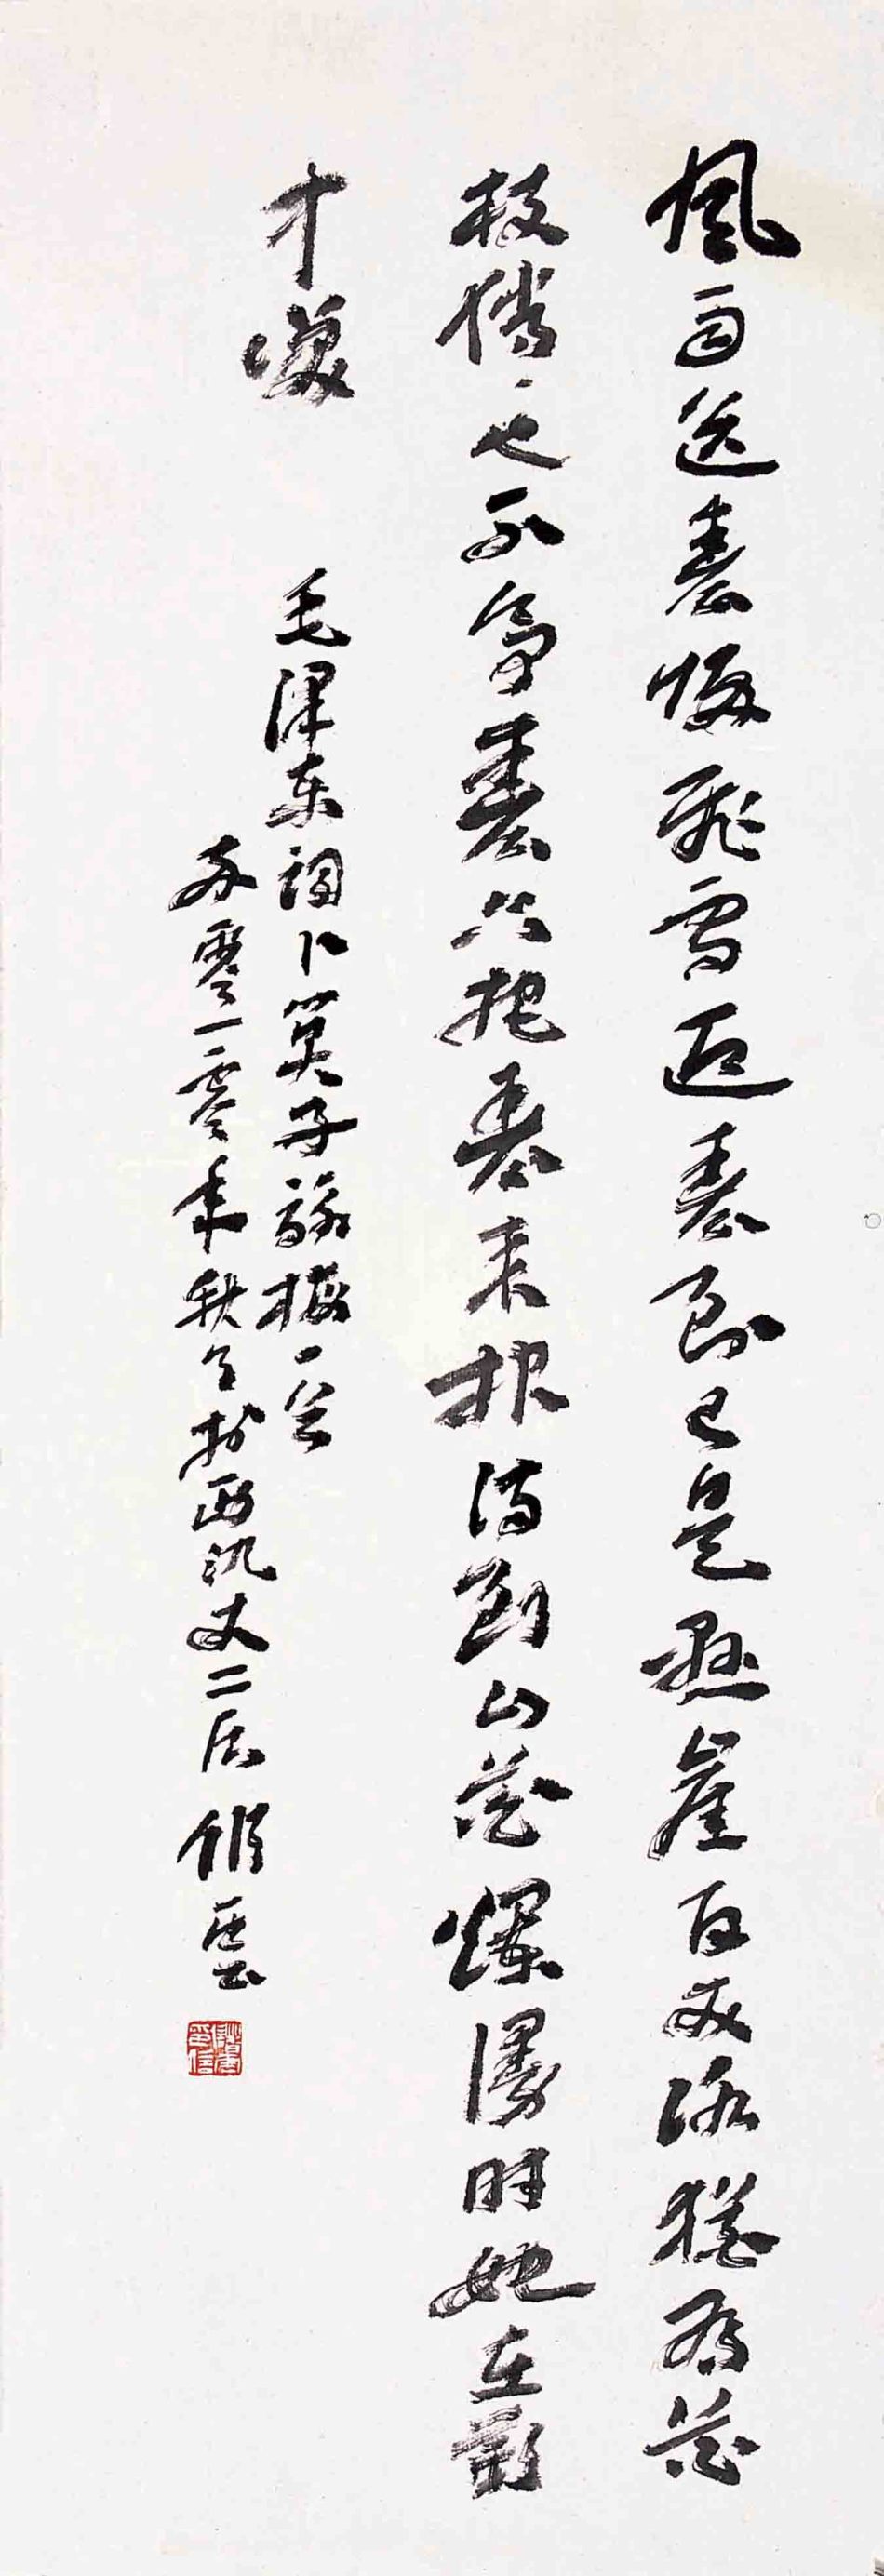 風雨送春歸飛雪迎春到已是懸崖百丈冰猶有花
枝俏也不爭春只把春来报待到山花爛漫時她在叢
中咲
毛澤東詞卜算子詠梅一首
零一零年秋於西丈二居